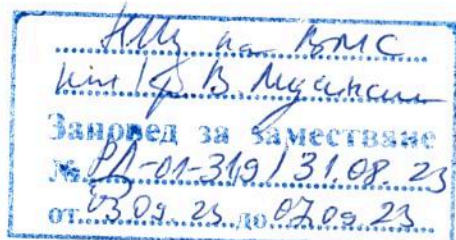 НЩ на ВМС
Заповед за заместване
№ РД-01-319 / 31.08.23
от 03.09.23 до 07.09.23